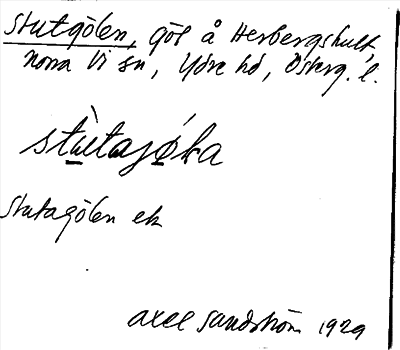 Stutgölen, göl å Herbergshult,
Norra Vi sn, Ydre hd, Österg. l.
stùtajǿka
Stutagölen ek
Axel Sandström 1929